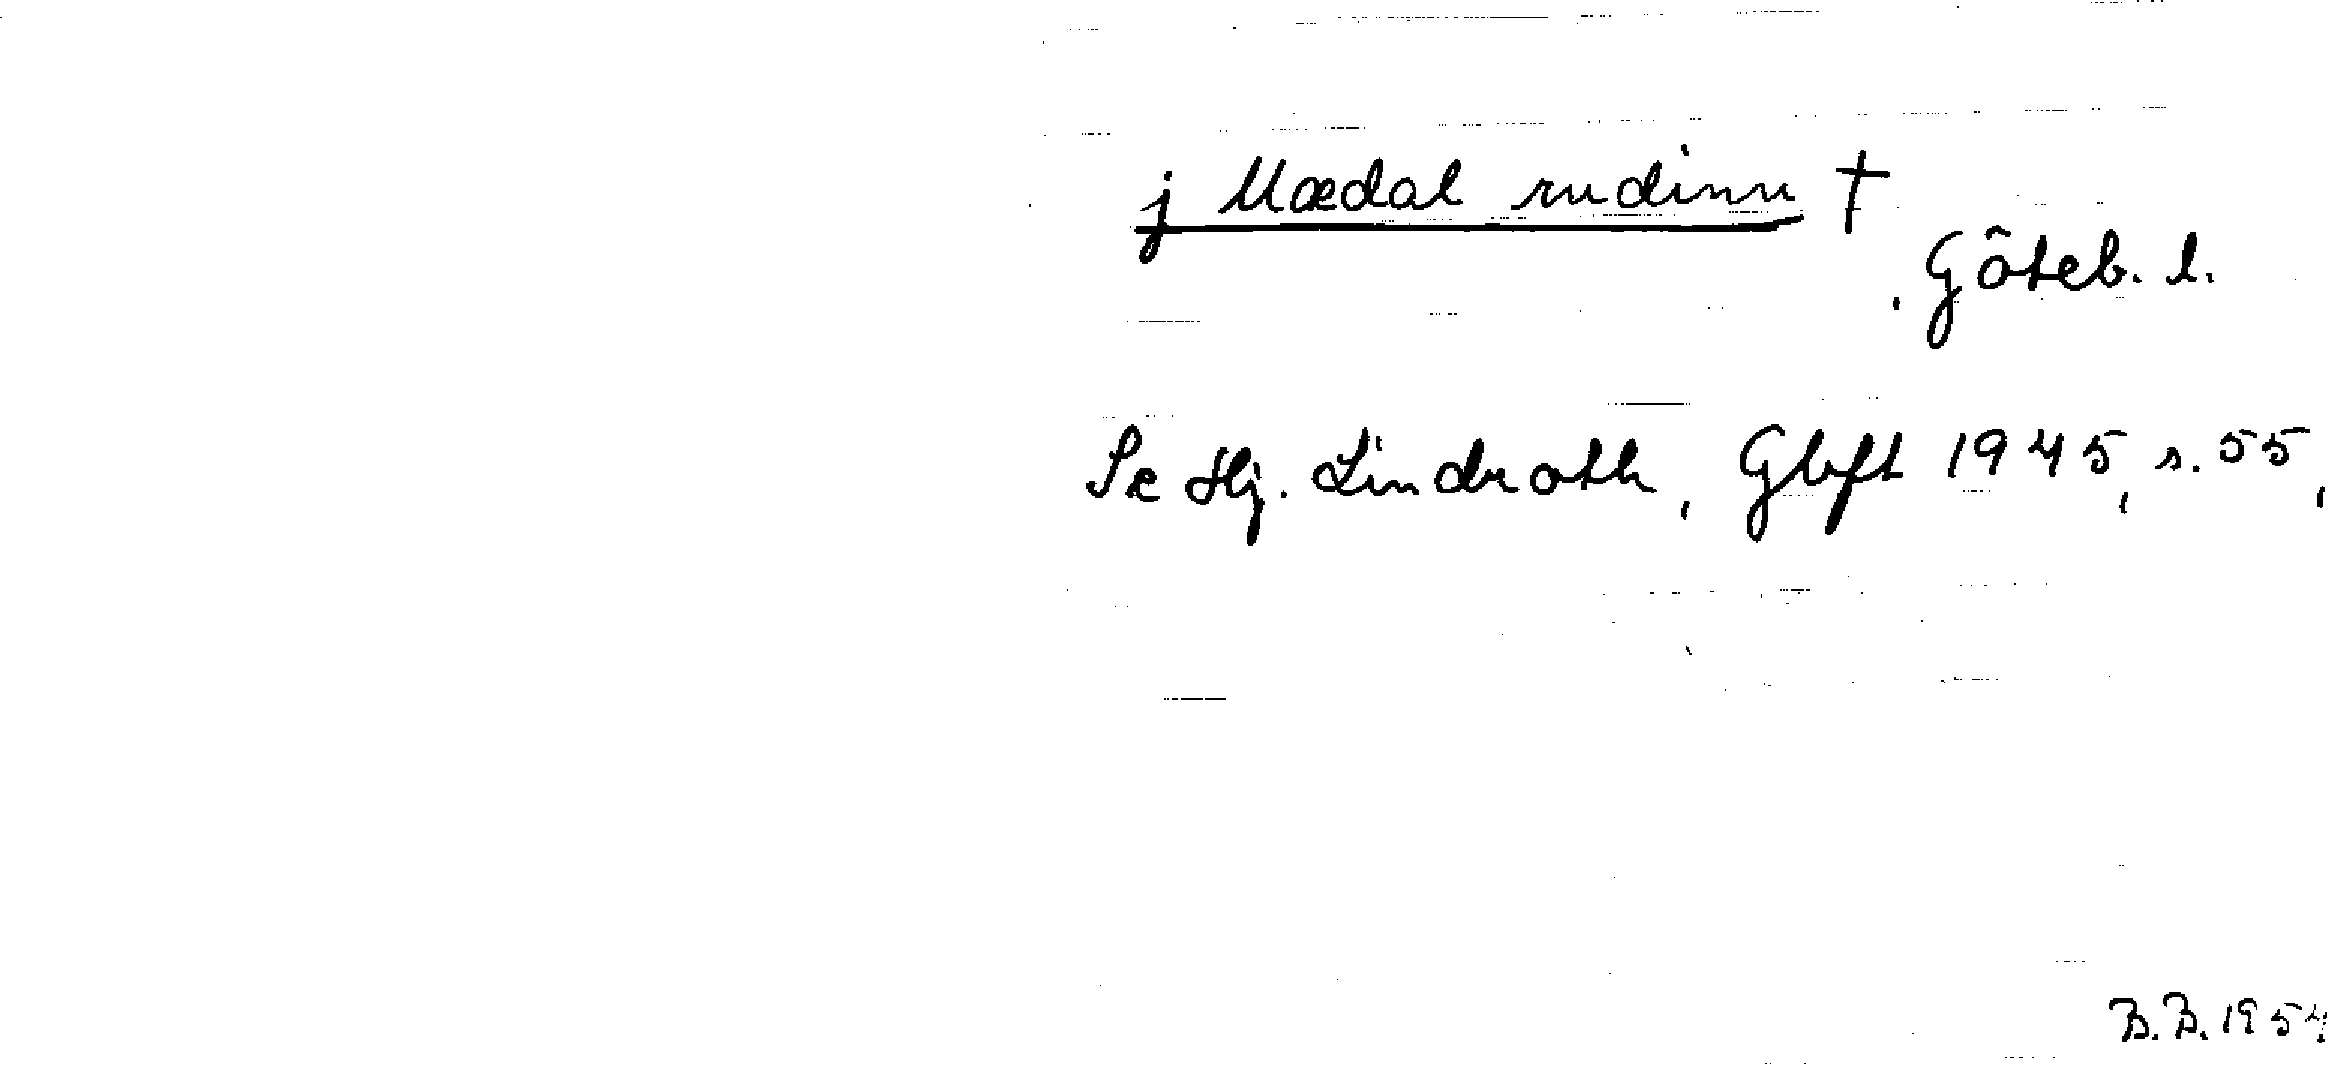 j Mædal rudinu †
Göteb. l.
Se Hj. Lindroth, Gbft 1945, s. 55,
B.B. 1954